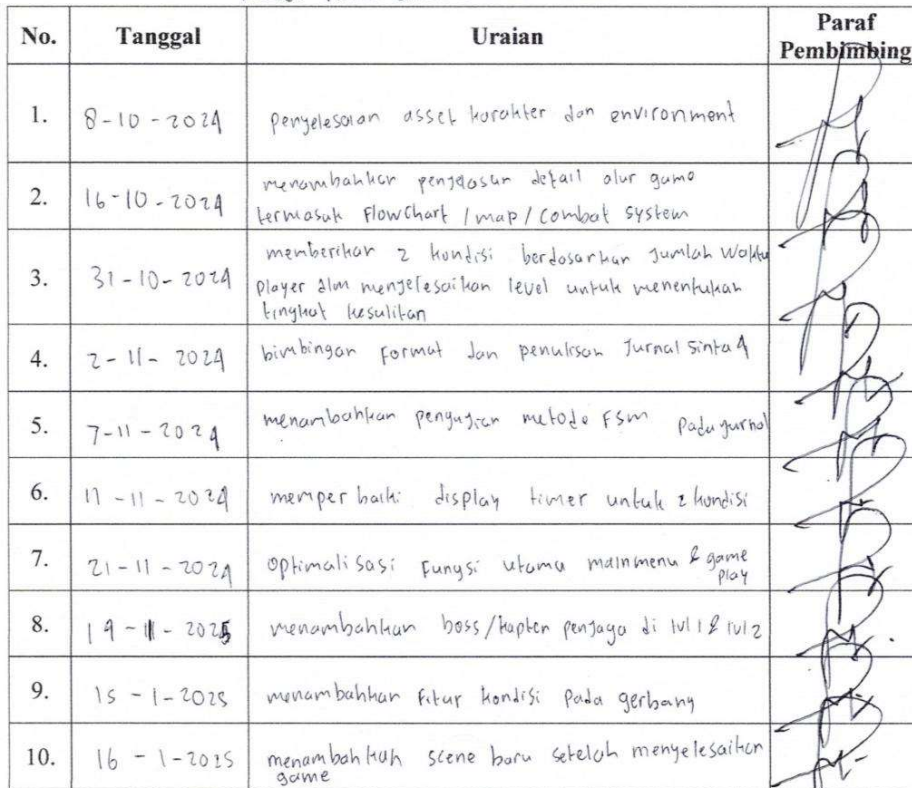 No. Tanggal Uraian Paraf
Pembimbing
1. 8-10-2024 penyelesaian asset karakter dan environment
2. 16-10-2024 menambahkan penjelasan detail alur game
termasuk Flowchart / map / combat system
3. 31-10-2024 memberikan 2 kondisi berdasarkan Jumlah Waktu
Player dlm menyelesaikan level untuk menentukan
tingkat kesulitan
4. 2-11-2024 bimbingan Format dan penulisan Jurnal Sinta 4
5. 7-11-2024 menambahkan pengujian metode FSM Pada jurnal
6. 11-11-2024 memperbaiki display timer untuk 2 kondisi
7. 21-11-2024 optimalisasi Fungsi utama mainmenu & game
play
8. menambahkan boss/kapten penjaga di lvl 1 & lvl 2
9. 15-1-2025 menambahkan Fitur kondisi Pada gerbang
10. 16-1-2025 menambahkan scene baru setelah menyelesaikan
game